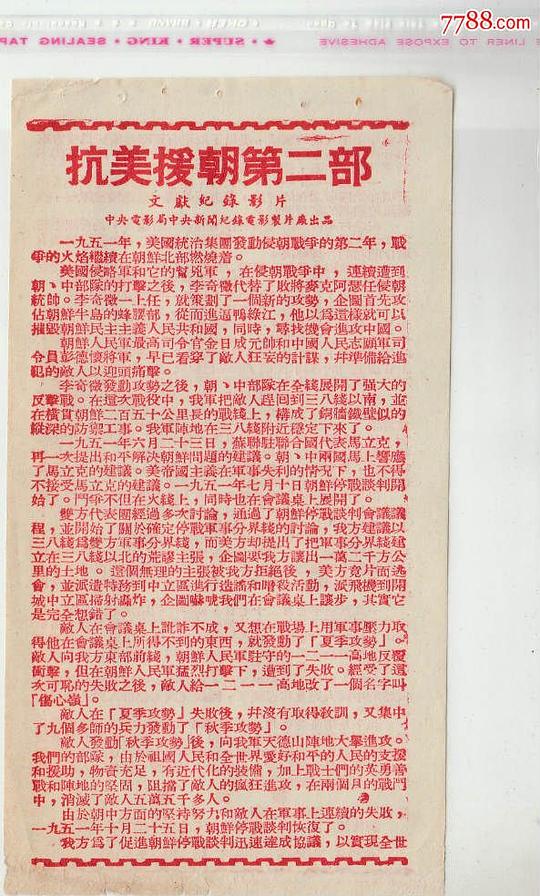 7788.com
LINER TO EXPOSE ADHESIVE
SUPER • KING • SEALING TAP
抗美援朝第二部
文獻紀錄影片
中央電影局中央新聞紀錄電影製片廠出品
一九五一年，美國統治集團發動侵朝戰爭的第二年，戰
爭的火焰繼續在朝鮮北部燃燒着。
美國侵略軍和它的幫兇軍，在侵朝戰爭中，連續遭到
朝、中部隊的打擊之後，李奇微代替了敗將麥克阿瑟任侵朝
統帥。李奇微一上任，就策劃了一個新的攻勢，企圖首先攻
佔朝鮮半島的蜂腰部，從而進逼鴨綠江，他以爲這樣就可以
摧毀朝鮮民主主義人民共和國，同時，尋找機會進攻中國。
朝鮮人民軍最高司令官金日成元帥和中國人民志願軍司
令員彭德懷將軍，早已看穿了敵人狂妄的計謀，幷準備給進
犯的敵人以迎頭痛擊。
李奇微發動攻勢之後，朝、中部隊在全綫展開了强大的
反擊戰。在這次戰役中，我軍把敵人趕回到三八綫以南，並
在橫貫朝鮮二百五十公里長的戰綫上，構成了銅牆鐵壁似的
縱深的防禦工事。我軍陣地在三八綫附近穩定下來了。
一九五一年六月二十三日，蘇聯駐聯合國代表馬立克，
再一次提出和平解決朝鮮問題的建議。朝、中兩國馬上響應
了馬立克的建議。美帝國主義在軍事失利的情况下，也不得
不接受馬立克的建議。一九五一年七月十日朝鮮停戰談判開
始了。鬥爭不但在火綫上，同時也在會議桌上展開了。
雙方代表團經過多次討論，通過了朝鮮停戰談判會議議
程，並開始了關於確定停戰軍事分界綫的討論，我方建議以
三八綫爲雙方軍事分界綫，而美方却提出了把軍事分界綫建
立在三八綫以北的荒謬主張，企圖要我方讓出一萬二千方公
里的土地。這個無理的主張被我方拒絕後，美方竟片面逃
會，並派遣特務到中立區進行造謠和暗殺活動，派飛機到開
城中立區掃射轟炸，企圖嚇唬我們在會議桌上讓步，其實它
是完全想錯了。
敵人在會議桌上訛詐不成，又想在戰場上用軍事壓力取
得他在會議桌上所得不到的東西，就發動了「夏季攻勢」。
敵人向我方東部前綫，朝鮮人民軍駐守的一二一一高地反覆
衝擊，但在朝鮮人民軍猛烈打擊下，遭到了失敗。經受了這
次可恥的失敗之後，敵人給一二一一高地改了一個名字叫
「傷心嶺」。
敵人在「夏季攻勢」失敗後，幷沒有取得敎訓，又集中
了九個多師的兵力發動了「秋季攻勢」。
敵人發動「秋季攻勢」後，向我軍天德山陣地大擧進攻。
我們的部隊，由於祖國人民和全世界愛好和平的人民的支援
和援助，物資充足，有近代化的裝備，加上戰士們的英勇善
戰和陣地的堅固，阻擋了敵人的瘋狂進攻，在兩個月的戰鬥
中，消滅了敵人五萬五千多人。
由於朝中方面的堅持努力和敵人在軍事上連續的失敗，
一九五一年十月二十五日，朝鮮停戰談判恢復了。
我方爲了促進朝鮮停戰談判迅速達成協議，以實現全世